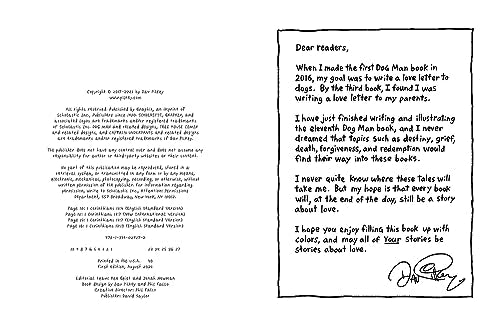 Copyright © 2017-2023 by Dav Pilkey
www.pilkey.com
All rights reserved. Published by Graphix, an imprint of
Scholastic Inc., Publishers since 1920. SCHOLASTIC, GRAPHIX, and
associated logos are trademarks and/or registered trademarks
of Scholastic Inc. DOG MAN and related designs, TREE HOUSE COMIX
and related designs, and CAPTAIN UNDERPANTS and related designs
are trademarks and/or registered trademarks of Dav Pilkey.
The publisher does not have any control over and does not assume any
responsibility for author or third-party websites or their content.
No part of this publication may be reproduced, stored in a
retrieval system, or transmitted in any form or by any means,
electronic, mechanical, photocopying, recording, or otherwise, without
written permission of the publisher. For information regarding
permission, write to Scholastic Inc., Attention: Permissions
Department, 557 Broadway, New York, NY 10012.
Printed in the U.S.A.
First edition, August
Book design by Dav Pilkey and Phil Falco
Creative Director: Phil Falco
Publisher: David Saylor
Dear readers,
When I made the first Dog Man book in
2016, my goal was to write a love letter to
dogs. By the third book, I found I was
writing a love letter to my parents.
I have just finished writing and illustrating
the eleventh Dog Man book, and I never
dreamed that topics such as destiny, grief,
death, forgiveness, and redemption would
find their way into these books.
I never quite know where these Tales will
take me. But my hope is that every book
will, at the end of the day, still be a story
about love.
I hope you enjoy filling this book up with
colors, and may all of Your stories be
stories about love.
Dav Pilkey